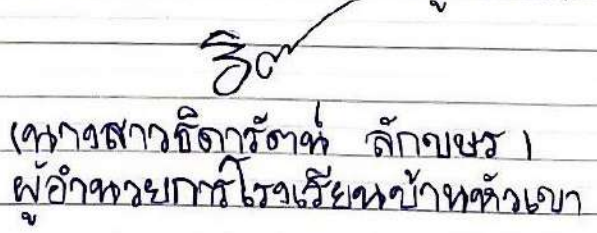 (นางสาวธิดารัตน์ ลักขษร)
ผู้อำนวยการโรงเรียนบ้านหัวเขา